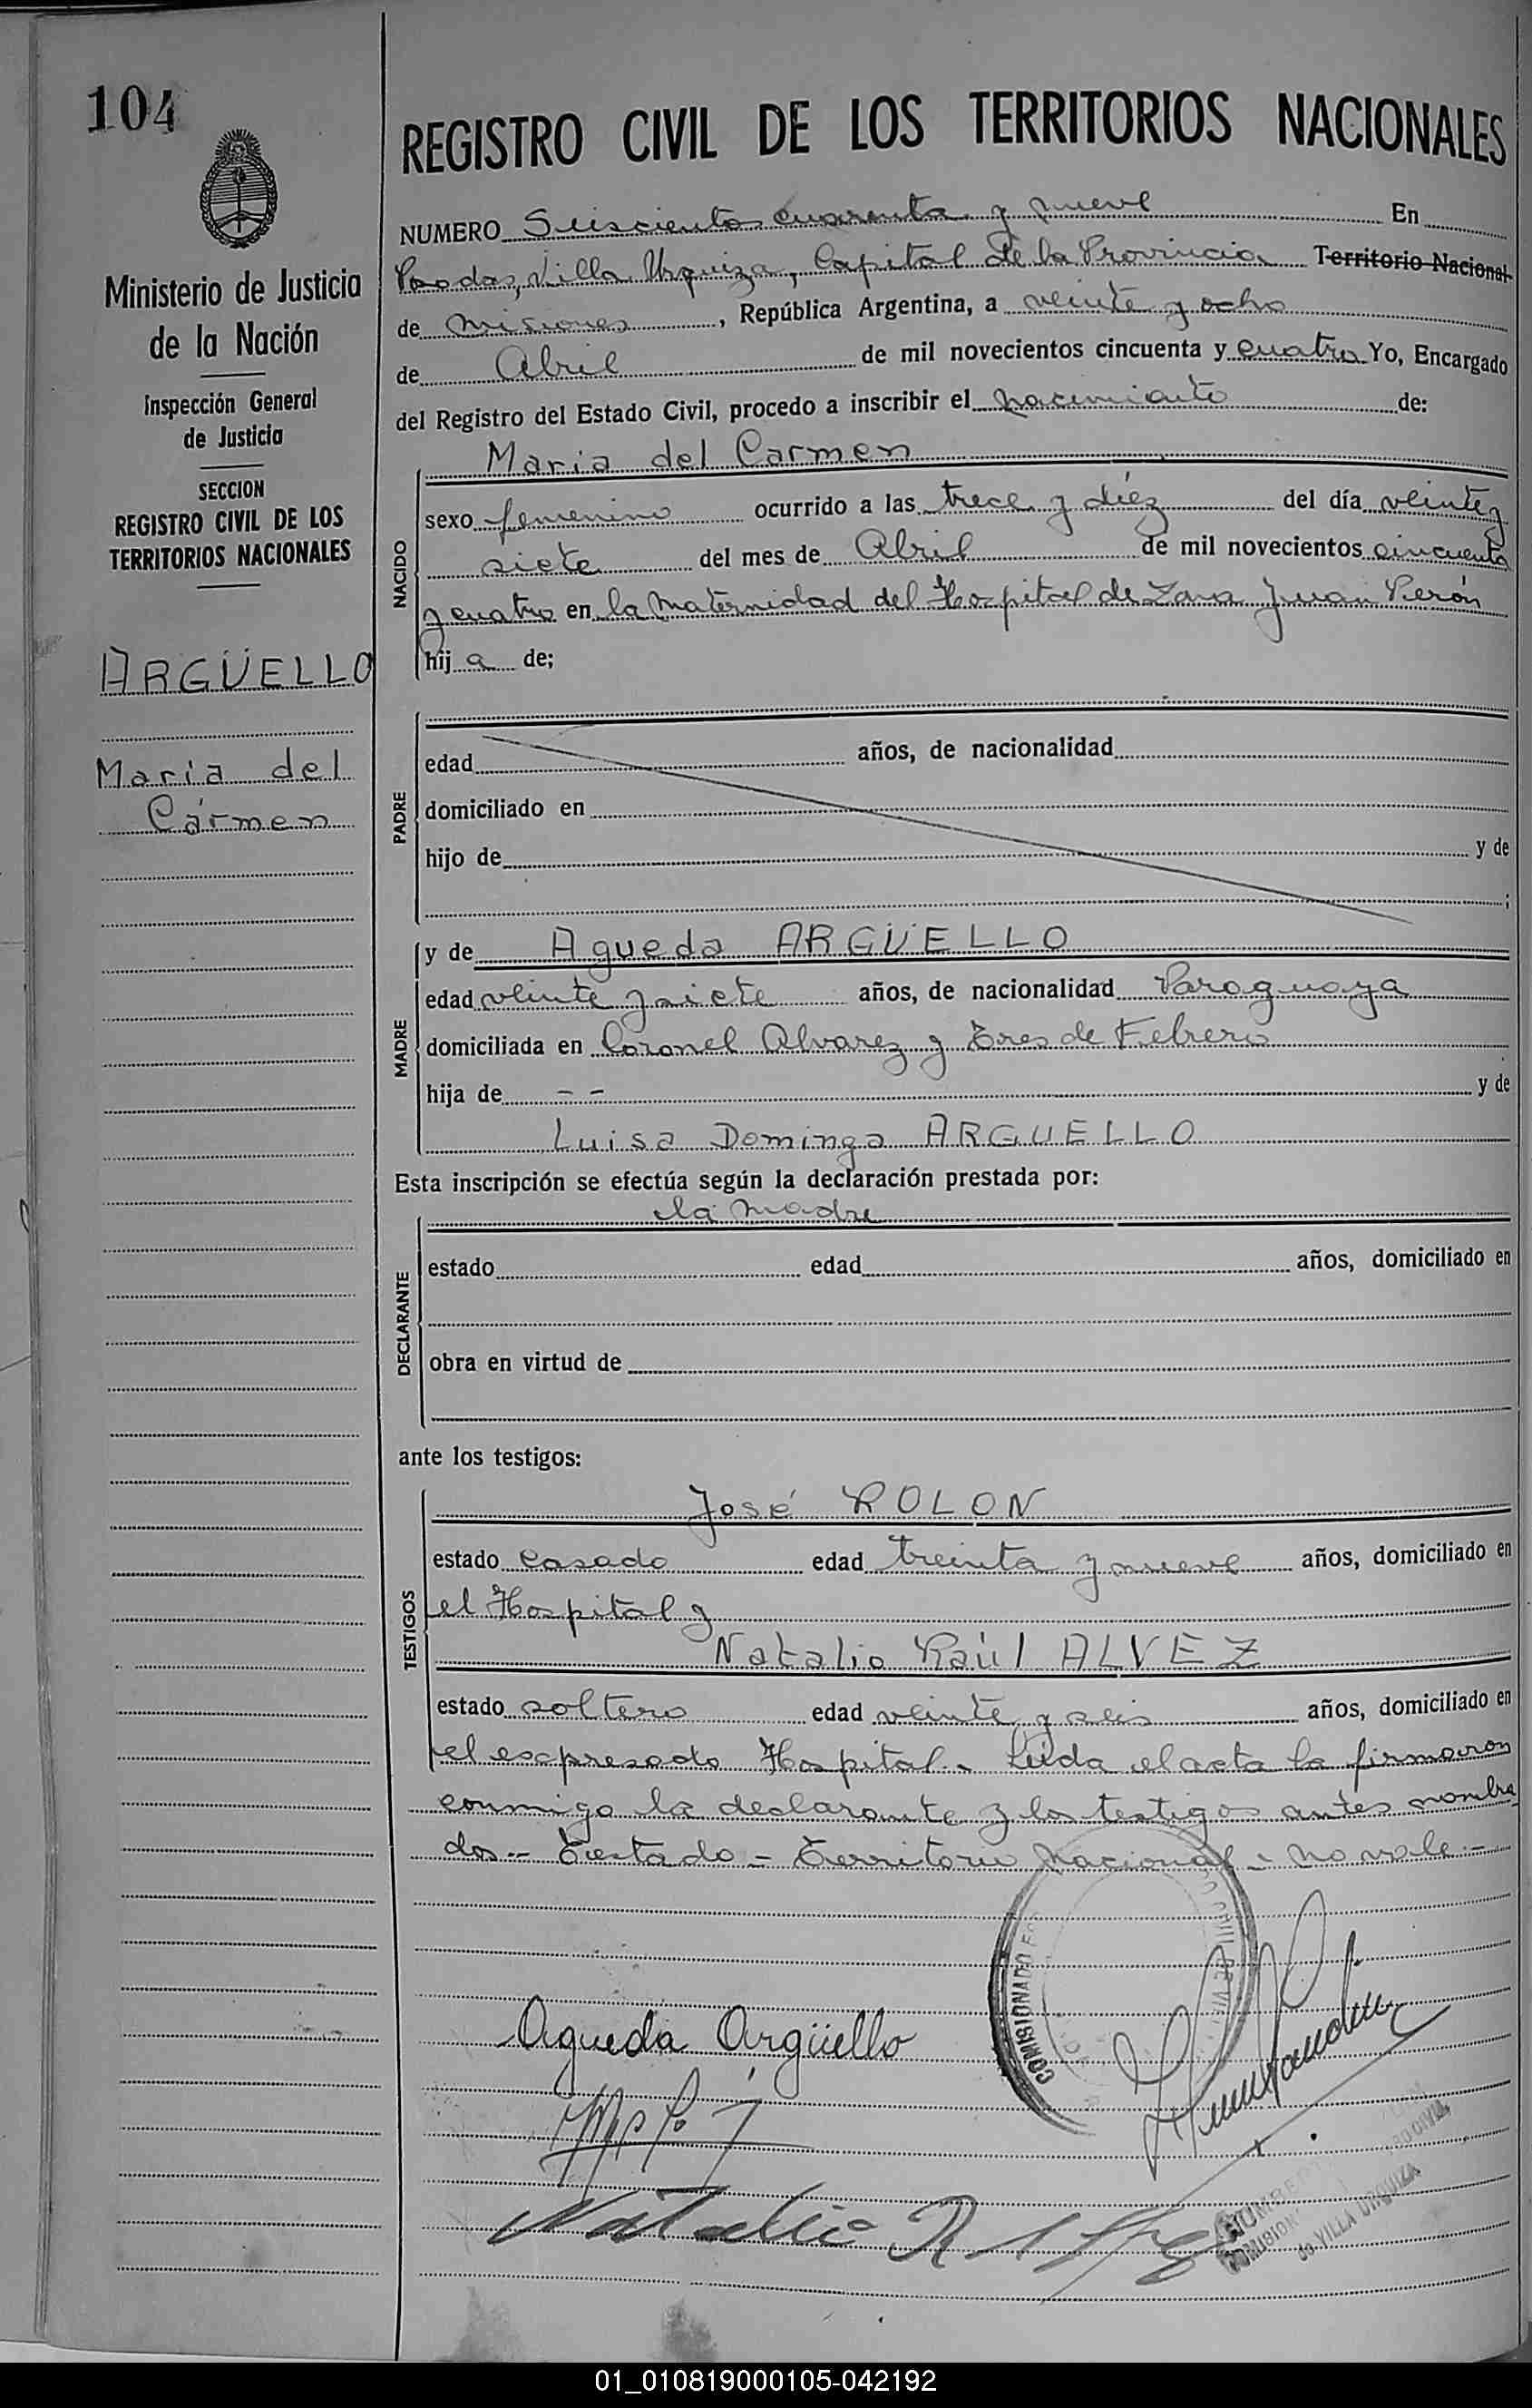 104
REGISTRO CIVIL DE LOS TERRITORIOS NACIONALES
Ministerio de Justicia
de la Nación
Inspección General
de Justicia
SECCION
REGISTRO CIVIL DE LOS
TERRITORIOS NACIONALES
ARGÜELLO
Maria del
Cármen
NUMERO Seiscientos cuarenta y nueve En
Posadas, Villa Urquiza, Capital de la Provincia Territorio Nacional
de Misiones, República Argentina, a veinte y ocho
de Abril de mil novecientos cincuenta y cuatro Yo, Encargado
del Registro del Estado Civil, procedo a inscribir el nacimiento de:
NACIDO
Maria del Carmen
sexo femenino ocurrido a las trece y diéz del día veinte y
siete del mes de Abril de mil novecientos cincuenta
y cuatro en la Maternidad del Hospital de Zona Juan Perón
hij a de;
PADRE
edad años, de nacionalidad
domiciliado en
hijo de y de
;
MADRE
y de Agueda ARGÜELLO
edad veinte y siete años, de nacionalidad Paraguaya
domiciliada en Coronel Alvarez y Tres de Febrero
hija de - - y de
Luisa Dominga ARGUELLO
Esta inscripción se efectúa según la declaración prestada por:
DECLARANTE
la madre
estado edad años, domiciliado en
obra en virtud de
ante los testigos:
TESTIGOS
José ROLON
estado casado edad treinta y nueve años, domiciliado en
el Hospital y
Natalio Raúl ALVEZ
estado soltero edad veinte y seis años, domiciliado en
el expresado Hospital.- Leida el acta la firmaron
conmigo la declarante y los testigos antes nombra
dos.- Testado - Territorio Nacional - no vale.-
COMISIONADO
Agueda Argüello
Natalio R
VILLA URQUIZA
01_010819000105-042192